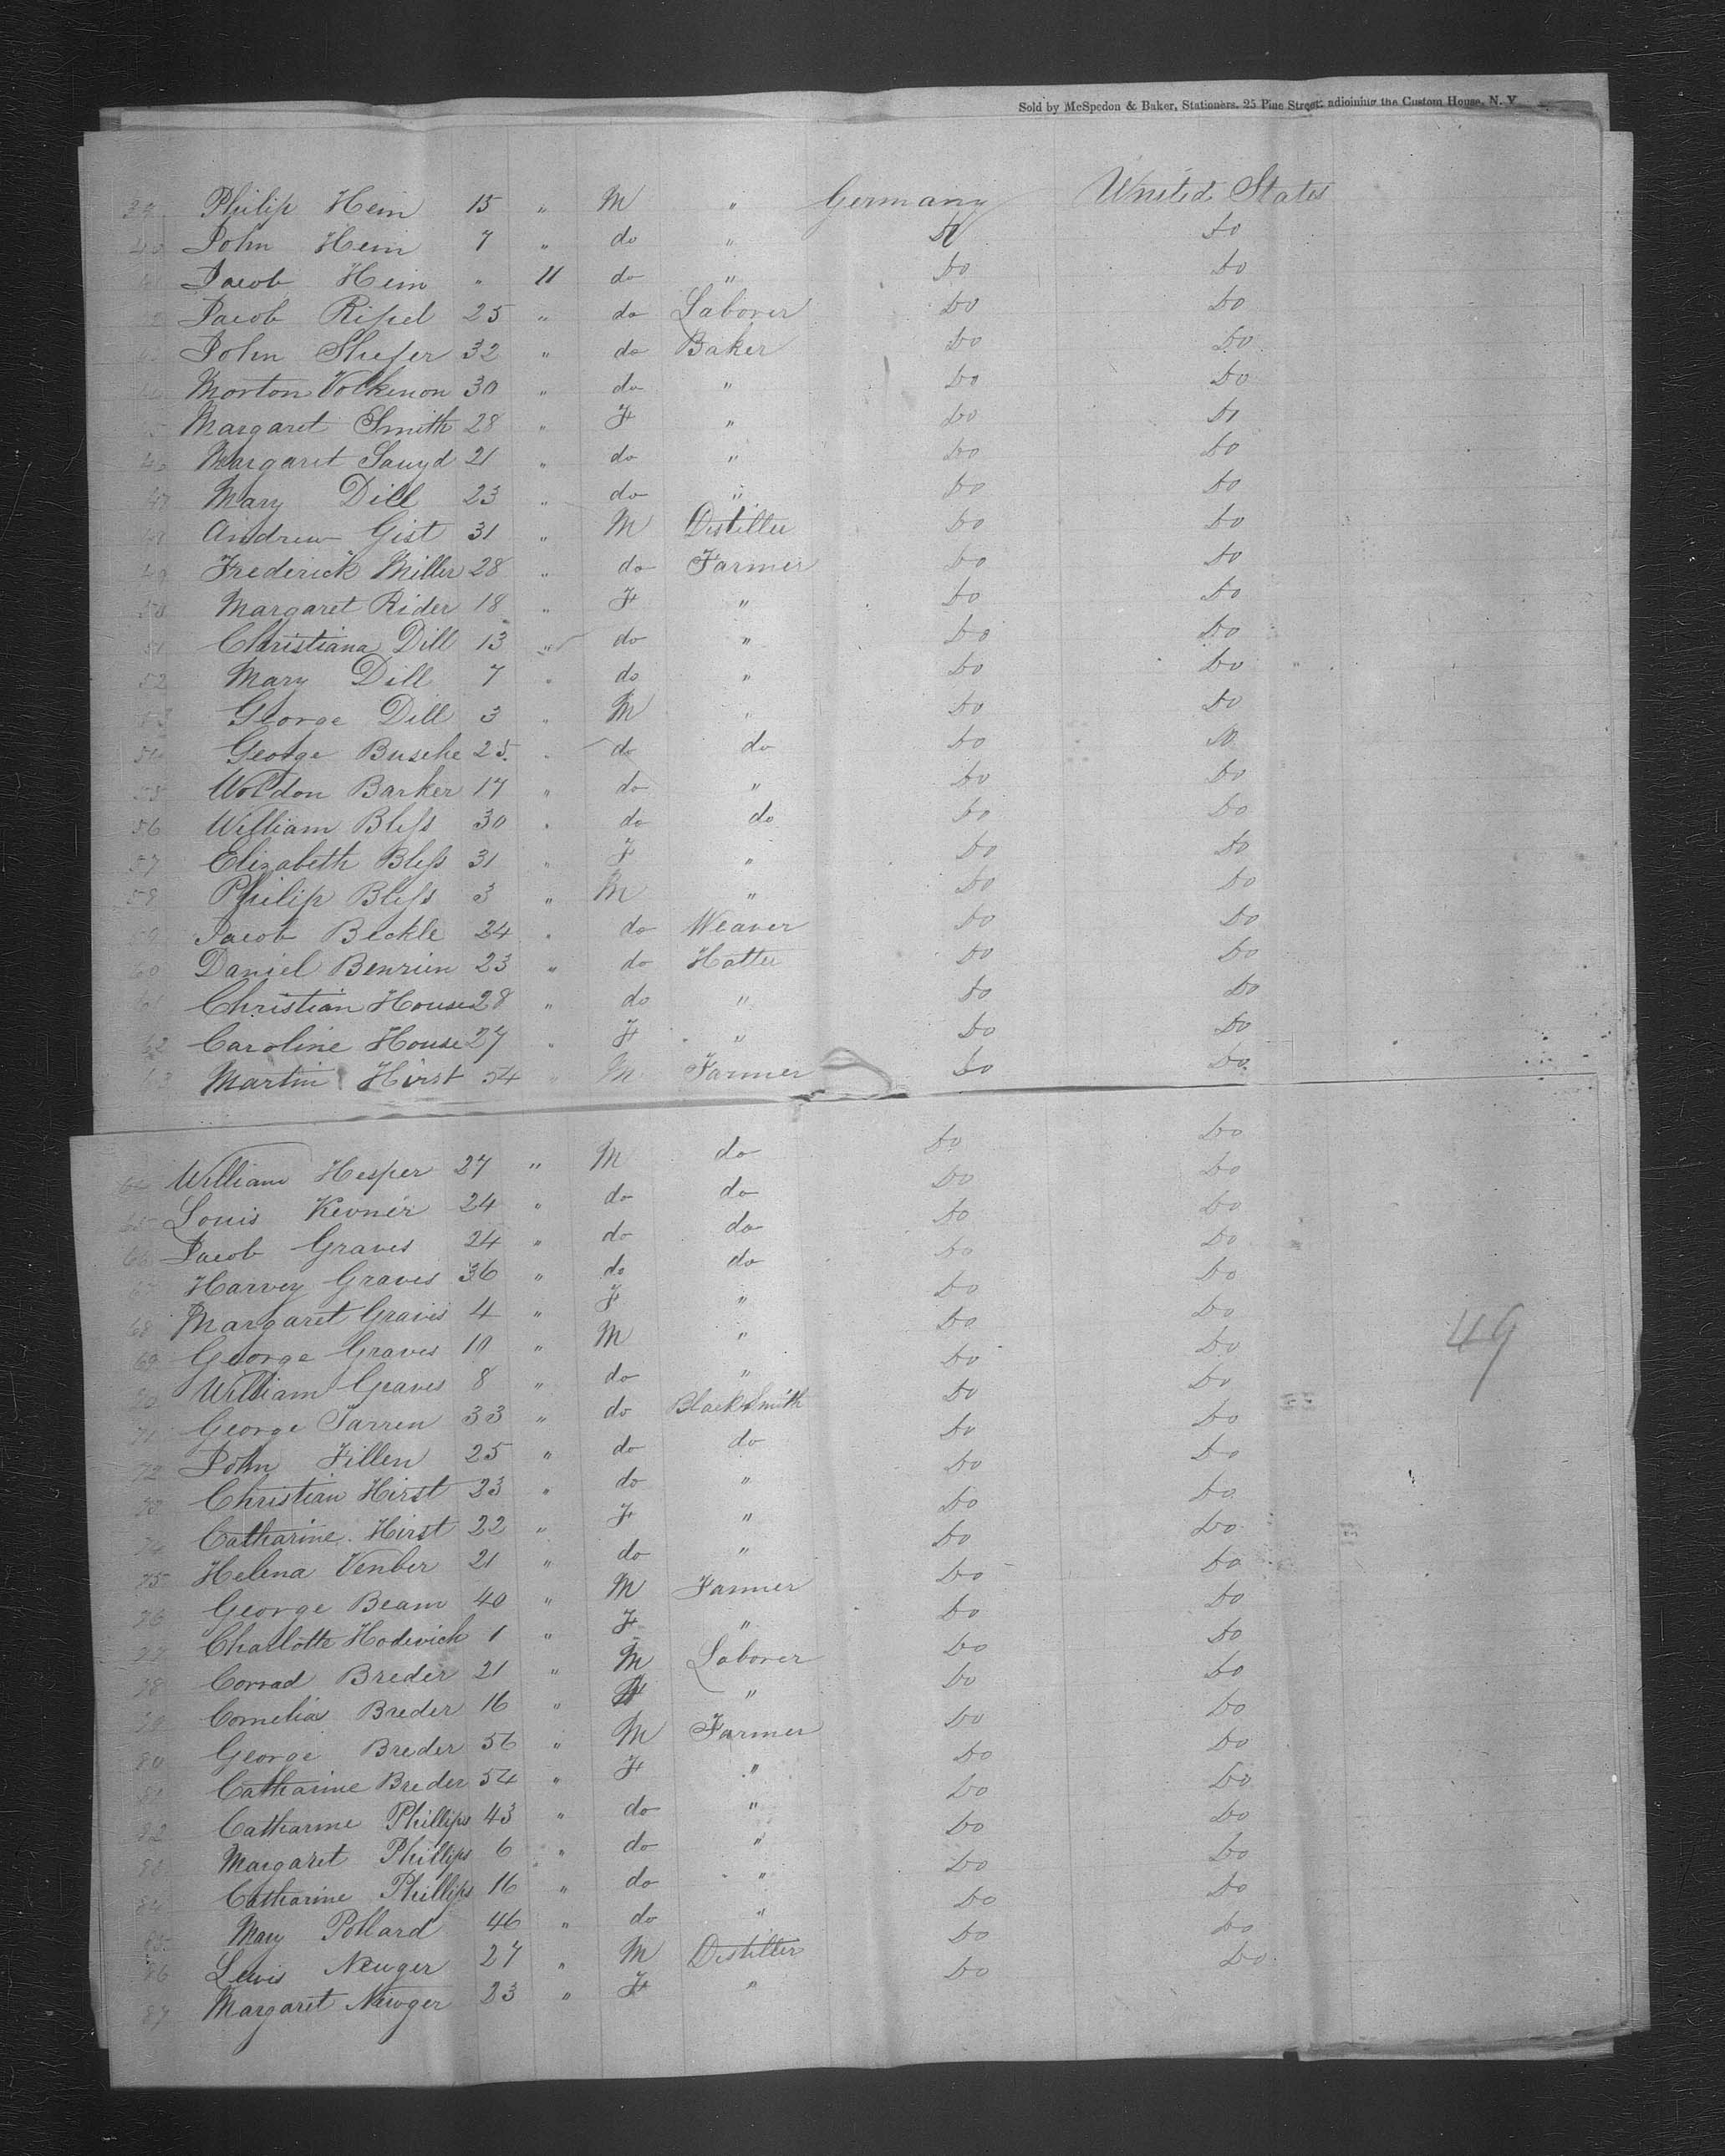 Sold by McSpedon & Baker, Stationers, 25 Pine Street, adjoining the Custom House, N. Y.
39 Philip Hein 15 " M " Germany United States
40 John Hein 7 " do " Do Do
41 Jacob Hein " 11 do " Do Do
42 Jacob Ripel 25 " do Laborer Do Do
43 John Shefer 32 " do Baker Do Do
44 Morton Volkenon 30 " do " Do Do
45 Margaret Smith 28 " F " Do Do
46 Margaret Sauyd 21 " do " Do Do
47 Mary Dill 23 " do " Do Do
48 Andrew Gist 31 " M Distiller Do Do
49 Frederick Miller 28 " do Farmer Do Do
50 Margaret Rider 18 " F " Do Do
51 Christiana Dill 13 " do " Do Do
52 Mary Dill 7 " do " Do Do
53 George Dill 3 " M " Do Do
54 George Busche 25 " do do Do Do
55 Woldon Barker 17 " do " Do Do
56 William Bless 30 " do do Do Do
57 Elizabeth Bless 31 " F " Do Do
58 Philip Bless 3 " M " Do Do
59 Jacob Beckle 24 " do Weaver Do Do
60 Daniel Benrien 23 " do Hatter Do Do
61 Christian House 28 " do " Do Do
62 Caroline House 27 " F " Do Do
63 Martin Hirst 54 " M Farmer Do Do
64 William Hesper 27 " M do Do Do
65 Louis Kevner 24 " do do Do Do
66 Jacob Graves 24 " do do Do Do
67 Harvey Graves 36 " do do Do Do
68 Margaret Graves 4 " F " Do Do
69 George Graves 10 " M " Do Do
70 William Graves 8 " do " Do Do
71 George Farren 33 " do BlackSmith Do Do
72 John Fillen 25 " do do Do Do
73 Christian Hirst 23 " do " Do Do
74 Catharine Hirst 22 " F " Do Do
75 Helena Venber 21 " do " Do Do
76 George Beam 40 " M Farmer Do Do
77 Charlotte Hodevich 1 " F " Do Do
78 Conrad Breder 21 " M Laborer Do Do
79 Cornelia Breder 16 " F " Do Do
80 George Breder 56 " M Farmer Do Do
81 Catharine Breder 54 " F " Do Do
82 Catharine Phillips 43 " do " Do Do
83 Margaret Phillips 6 " do " Do Do
84 Catharine Phillips 16 " do " Do Do
85 Mary Pollard 46 " do " Do Do
86 Lewis Neuger 27 " M Distiller Do Do
87 Margaret Neuger 23 " F " Do Do
49